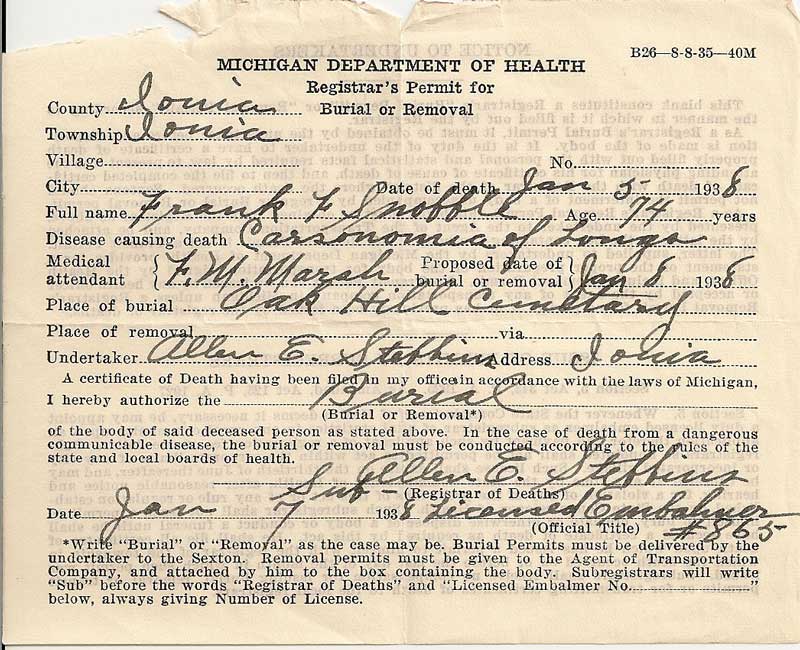 B26—8-8-35—40M
MICHIGAN DEPARTMENT OF HEALTH
Registrar's Permit for
Burial or Removal
County Ionia
Township Ionia
Village No.
City Date of death Jan 5- 1938
Full name Frank F Snobble Age 74 years
Disease causing death Carsonomia of Longs
Medical attendant F. M. Marsh Proposed date of burial or removal Jan 8 1938
Place of burial Oak Hill Cemetary
Place of removal via
Undertaker Allen E. Stebbins Address Ionia
A certificate of Death having been filed in my office in accordance with the laws of Michigan,
I hereby authorize the Burial
(Burial or Removal*)
of the body of said deceased person as stated above. In the case of death from a dangerous
communicable disease, the burial or removal must be conducted according to the rules of the
state and local boards of health.
Allen E. Stebbins
Sub- (Registrar of Deaths)
Date Jan 7 1938 Licensed Embalmer
(Official Title) #865
*Write "Burial" or "Removal" as the case may be. Burial Permits must be delivered by the
undertaker to the Sexton. Removal permits must be given to the Agent of Transportation
Company, and attached by him to the box containing the body. Subregistrars will write
"Sub" before the words "Registrar of Deaths" and "Licensed Embalmer No. "
below, always giving Number of License.